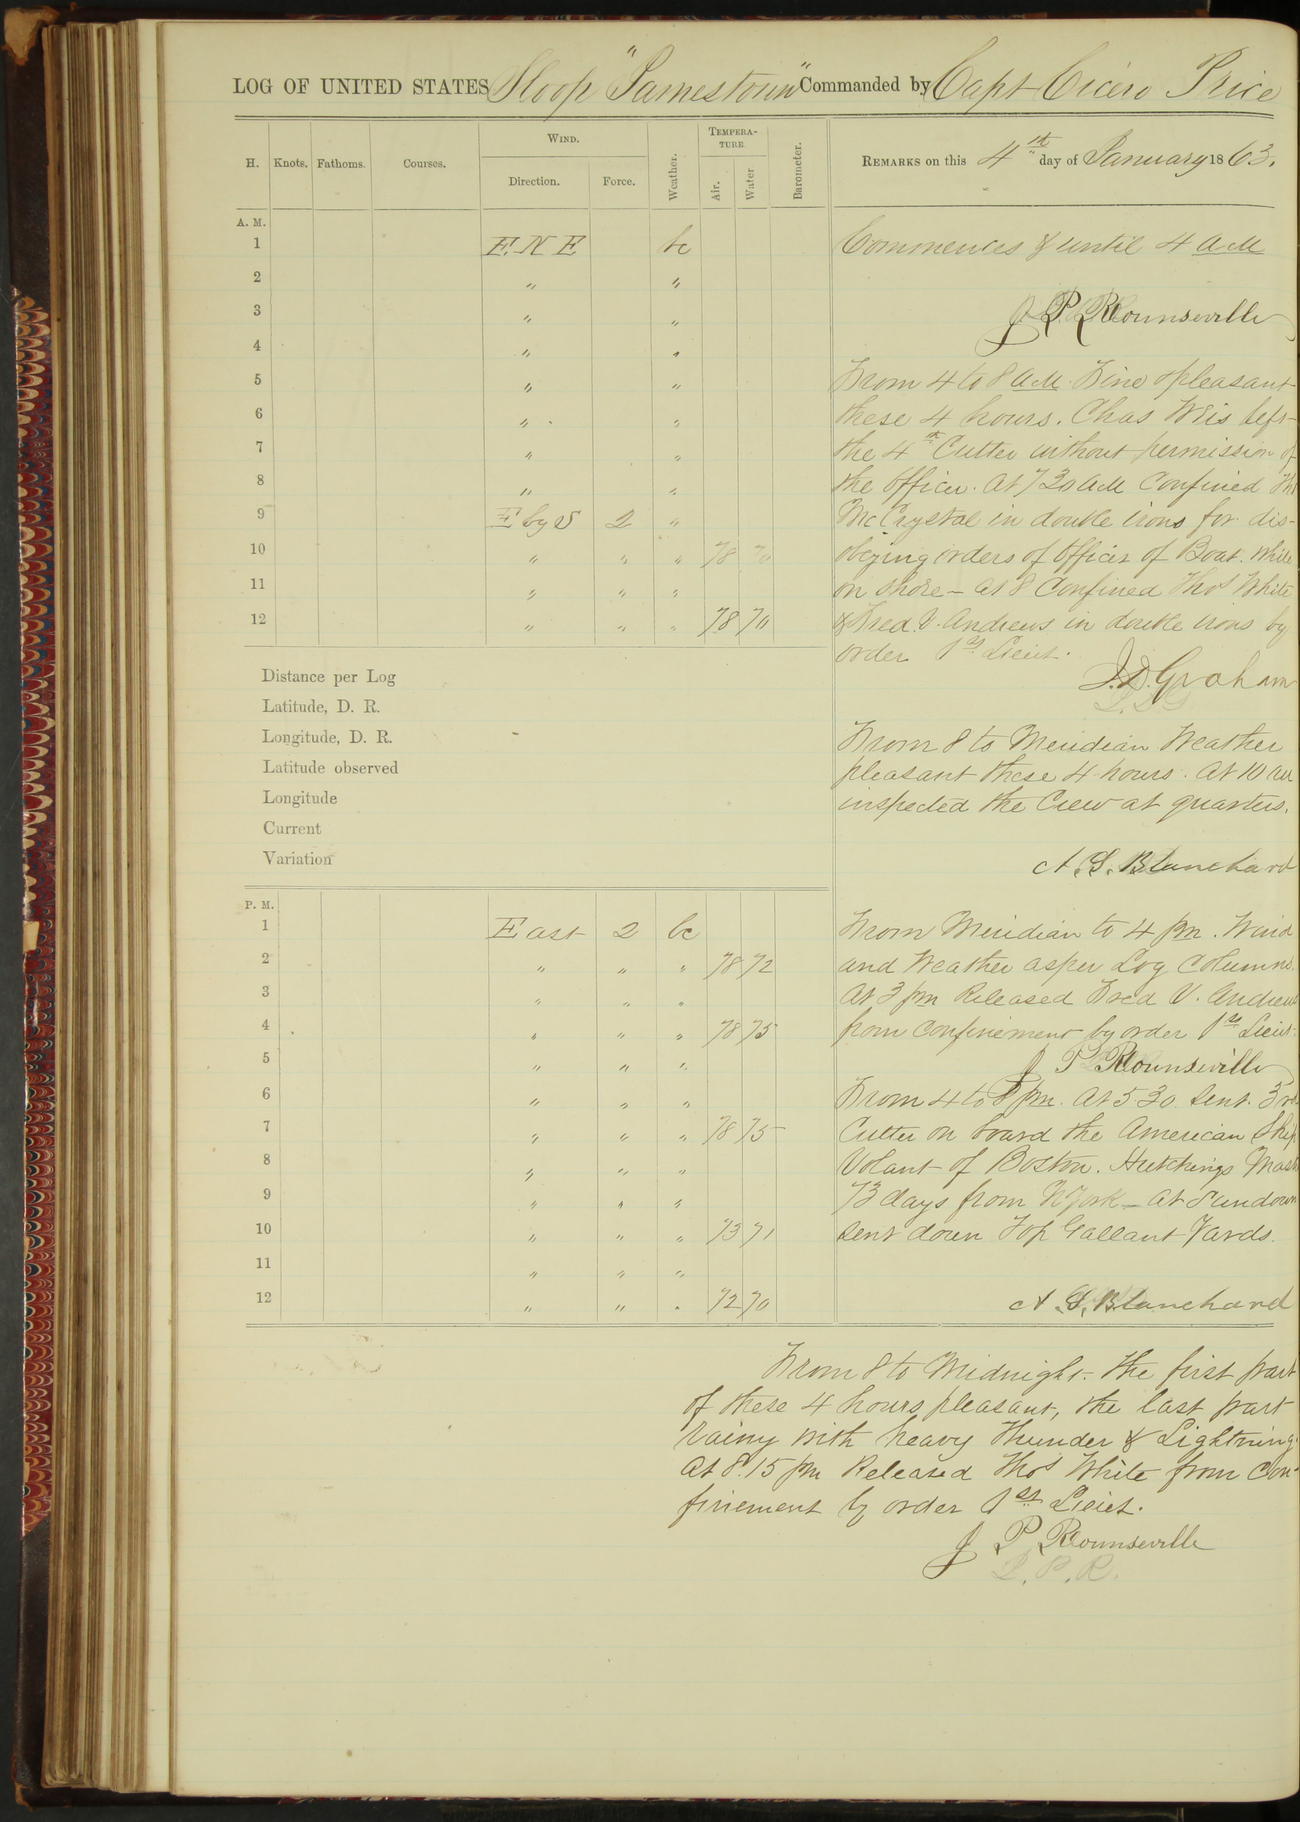 LOG OF UNITED STATES Sloop "Jamestown" Commanded by Capt Cicero Price
H. Knots. Fathoms. Courses. WIND. Direction. Force. Weather. TEMPERATURE. Air. Water Barometer.
REMARKS on this 4th day of January 1863.
A. M.
1 E.N.E bc
2 " "
3 " "
4 " "
5 " "
6 " "
7 " "
8 " "
9 E by S 2 "
10 " " " 78 70
11 " " "
12 " " " 78 70
Commences & until 4 AM
J. P. Rounseville
From 4 to 8 AM Fine & pleasant
these 4 hours. Chas left
the 4th Cutter without permission of
the Officer. At 7 30 AM Confined Thos
McCrystal in double irons for dis-
obeying orders of Officer of Boat. while
on shore - at 8 Confined Thos White
& Fred. V. Andrews in double irons by
order 1st Lieut.
J. D. Graham
From 8 to Meridian Weather
pleasant these 4 hours. At 10 AM
inspected the Crew at quarters.
A. S. Blanchard
Distance per Log
Latitude, D. R.
Longitude, D. R.
Latitude observed
Longitude
Current
Variation
P. M.
1 East 2 bc
2 " " " 78 72
3 " " "
4 " " " 78 75
5 " " "
6 " " "
7 " " " 78 75
8 " " "
9 " " "
10 " " " 73 71
11 " " "
12 " " " 72 70
From Meridian to 4 pm. Wind
and Weather as per Log Columns.
At 3 pm Released Fred V. Andrews
from Confinement by order 1st Lieut.
J P Rounseville
From 4 to 8 pm. At 5 30 sent 3rd
Cutter on board the American Ship
Volant of Boston. Hutchings Mast
73 days from N York - At Sundown
sent down Top Gallant Yards.
A. S. Blanchard
From 8 to Midnight. The first part
of these 4 hours pleasant, the last part
rainy with heavy Thunder & Lightning.
At 8.15 pm Released Thos White from Con-
finement by order 1st Lieut.
J P Rounseville